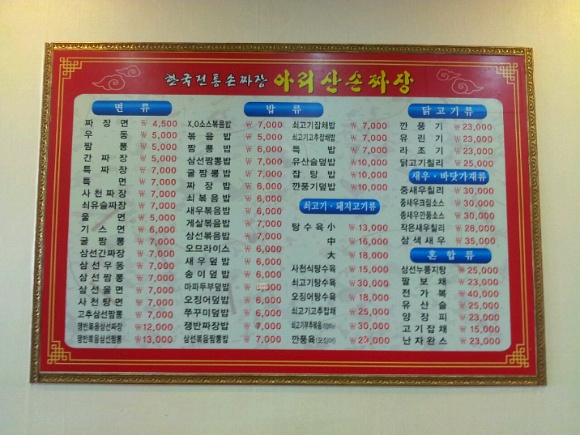 한국전통손짜장 아리산손짜장
면 류
짜 장 면 ₩ 4,500
우 동 ₩ 5,000
짬 뽕 ₩ 5,000
간 짜 장 ₩ 5,000
특 짜 장 ₩ 7,000
특 면 ₩ 7,000
사천짜장 ₩ 7,000
쇠유슬짜장 ₩ 7,000
울 면 ₩ 5,000
기 스 면 ₩ 6,000
굴 짬 뽕 ₩ 7,000
삼선간짜장 ₩ 7,000
삼 선 우 동 ₩ 7,000
삼 선 짬 뽕 ₩ 7,000
삼 선 울 면 ₩ 7,000
사 천 탕 면 ₩ 7,000
고추삼선짬뽕 ₩ 7,000
쟁반볶음삼선짜장 ₩ 12,000
쟁반볶음삼선짬뽕 ₩ 13,000
밥 류
X.O소스볶음밥 ₩ 7,000
볶 음 밥 ₩ 5,000
짬 뽕 밥 ₩ 6,000
삼선짬뽕밥 ₩ 7,000
굴 짬 뽕 밥 ₩ 7,000
짜 장 밥 ₩ 6,000
쇠볶음밥 ₩ 6,000
새우볶음밥 ₩ 6,000
게살볶음밥 ₩ 7,000
삼선볶음밥 ₩ 7,000
오므라이스 ₩ 6,000
새 우 덮 밥 ₩ 6,000
송 이 덮 밥 ₩ 6,000
마파두부덮밥
오징어덮밥 ₩ 6,000
쭈꾸미덮밥 ₩ 6,000
쟁반짜장밥 ₩ 7,000
삼선볶음짬뽕밥 ₩ 7,000
쇠고기잡채밥 ₩ 7,000
쇠고기고추잡채밥 ₩ 7,000
특 밥 ₩ 7,000
유산슬덮밥 ₩ 10,000
잡 탕 밥 ₩ 10,000
깐풍기덮밥 ₩ 10,000
쇠고기 · 돼지고기류
탕 수 육 小 ₩ 13,000
中 ₩ 16,000
大 ₩ 18,000
사천식탕수육 ₩ 15,000
쇠고기탕수육 ₩ 30,000
오징어탕수육 ₩ 18,000
쇠고기고추잡채 ₩ 25,000
쇠고기부추볶음 ₩ 30,000
깐풍육
닭고기류
깐 풍 기 ₩ 23,000
유 린 기 ₩ 23,000
라 조 기 ₩ 23,000
닭고기칠리 ₩ 25,000
새우 · 바닷가재류
중새우칠리 ₩ 30,000
중새우크림소스 ₩ 30,000
중새우깐풍소스 ₩ 30,000
작은새우칠리 ₩ 28,000
삼 색 새 우 ₩ 35,000
혼 합 류
삼선누룽지탕 ₩ 25,000
팔 보 채 ₩ 23,000
전 가 복 ₩ 40,000
유 산 슬 ₩ 25,000
양 장 피 ₩ 23,000
고 기 잡 채 ₩ 15,000
난 자 완 스 ₩ 23,000